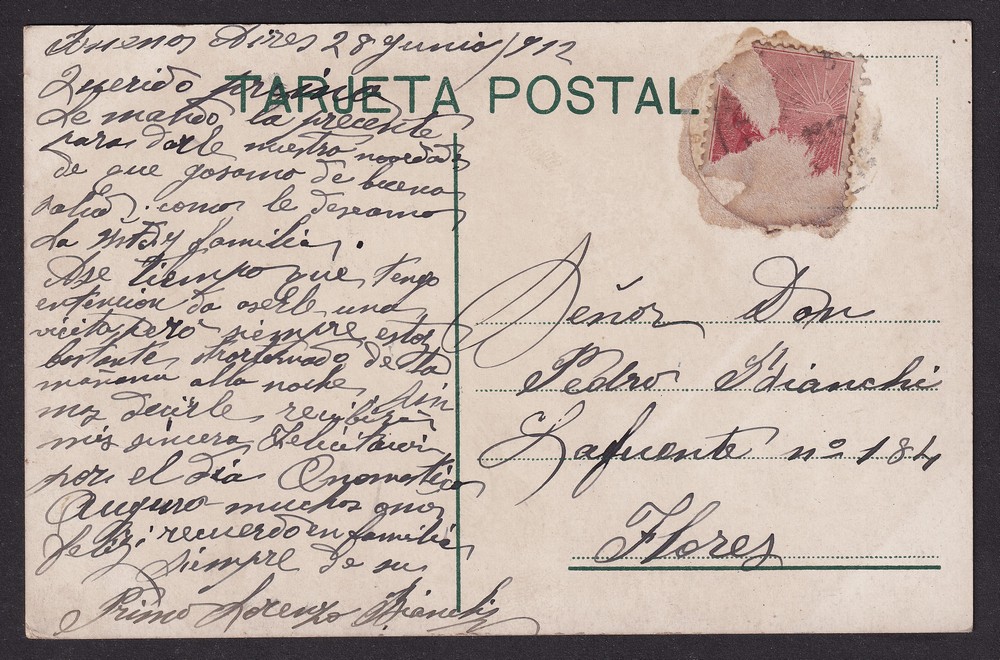 Buenos Aires 28 Junio 1912
TARJETA POSTAL.
Querido primo
Le mando la precente
para darle nuestra novedad
de que gosamo de buena
salud. como le deseamos
La Ustd y familia.
Ase tiempo que tengo
entencion da aserle una
vicita, pero siempre estoy
bastante de la
mañana alla noche. Sin
mas decirle recibirá
mis sincera Felicitacion
por el dia Onomastico
Auguro muchos anos
feliz i recuerdo en familia
siempre de su
Primo Lorenzo Bianchi
Señor Don
Pedro Bianchi
Lafuente nº 184
Flores